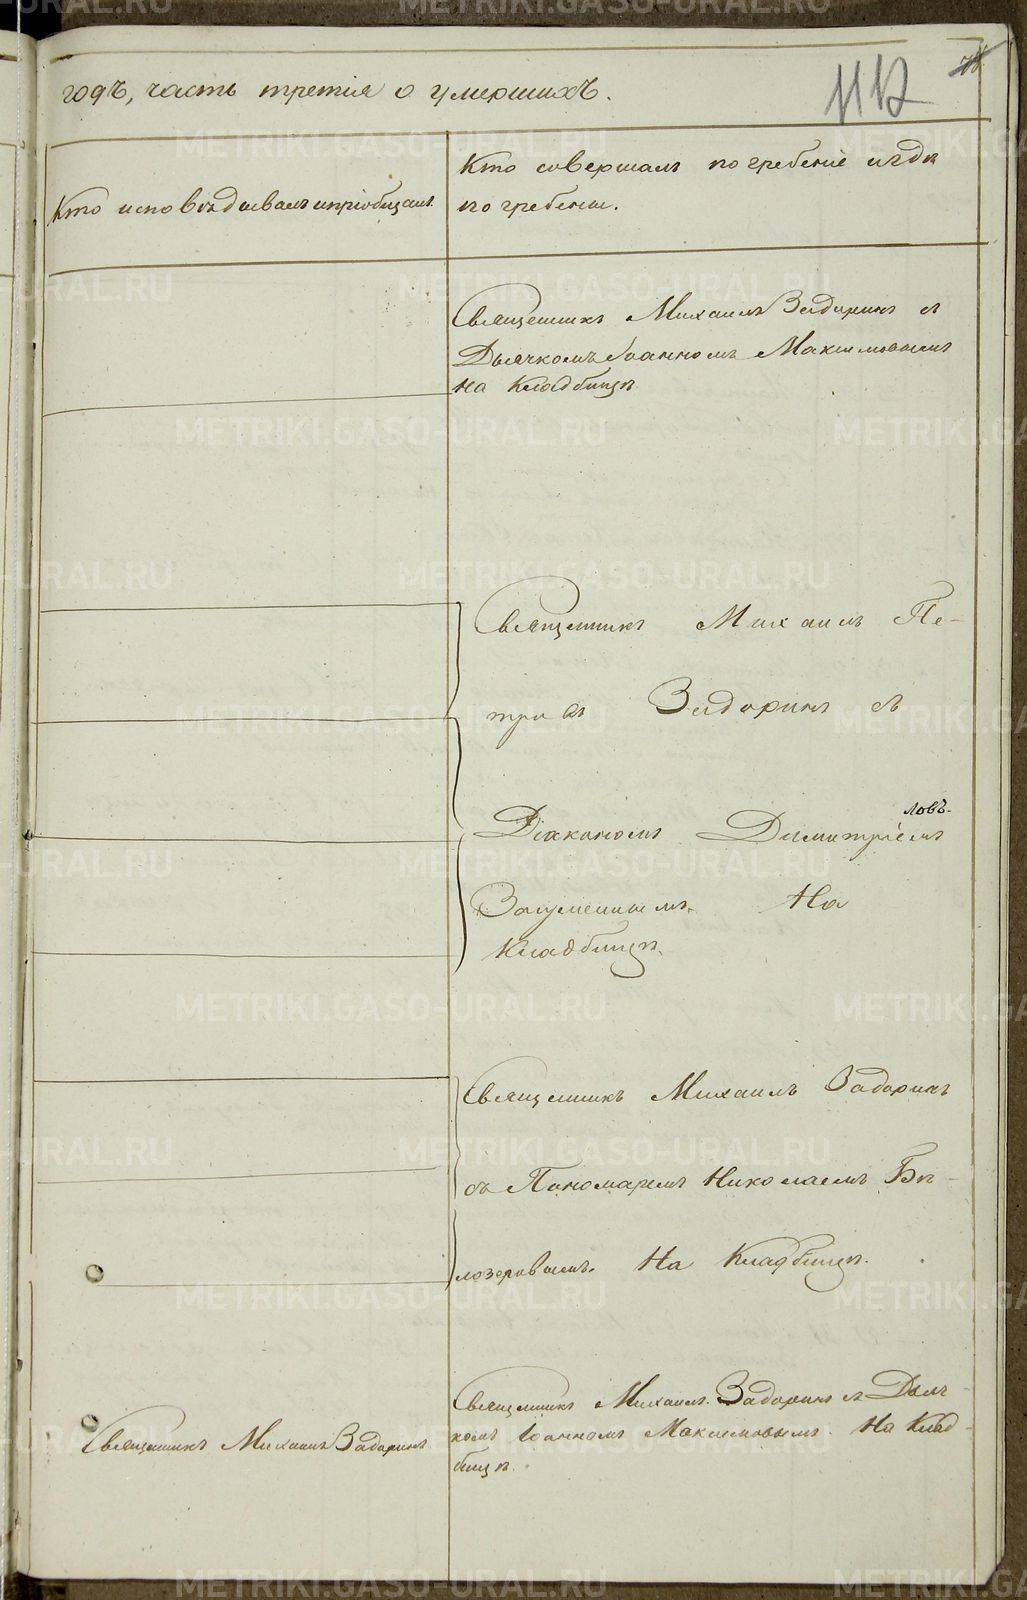 годъ, часть третія о умершихъ.
112
Кто исповѣдывалъ и пріобщалъ.
Кто совершалъ погребеніе и гдѣ
погребены.
Священникъ Михаилъ Задоринъ съ
Дьячкомъ Іоанномъ Максимовымъ
на Кладбищѣ
Священникъ Михаилъ Пе-
тровъ Задоринъ съ
ловъ.
Діакономъ Димитріемъ
На
Кладбищѣ.
Священникъ Михаилъ Задоринъ
съ Пономаремъ Николаемъ Бѣ-
лозеровымъ. На Кладбищѣ.
Священникъ Михаилъ Задоринъ
Священникъ Михаилъ Задоринъ съ Дьяч-
комъ Іоанномъ Максимовымъ. На Клад-
бищѣ.
METRIKI.GASO-URAL.RU